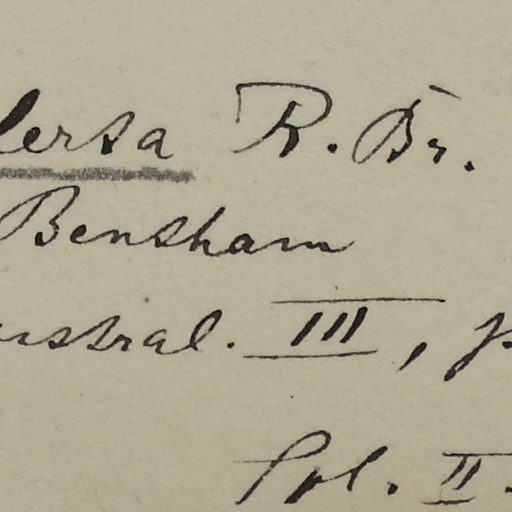 lersa R. Br.
Bensham
ustral. III, p
Pol. II.